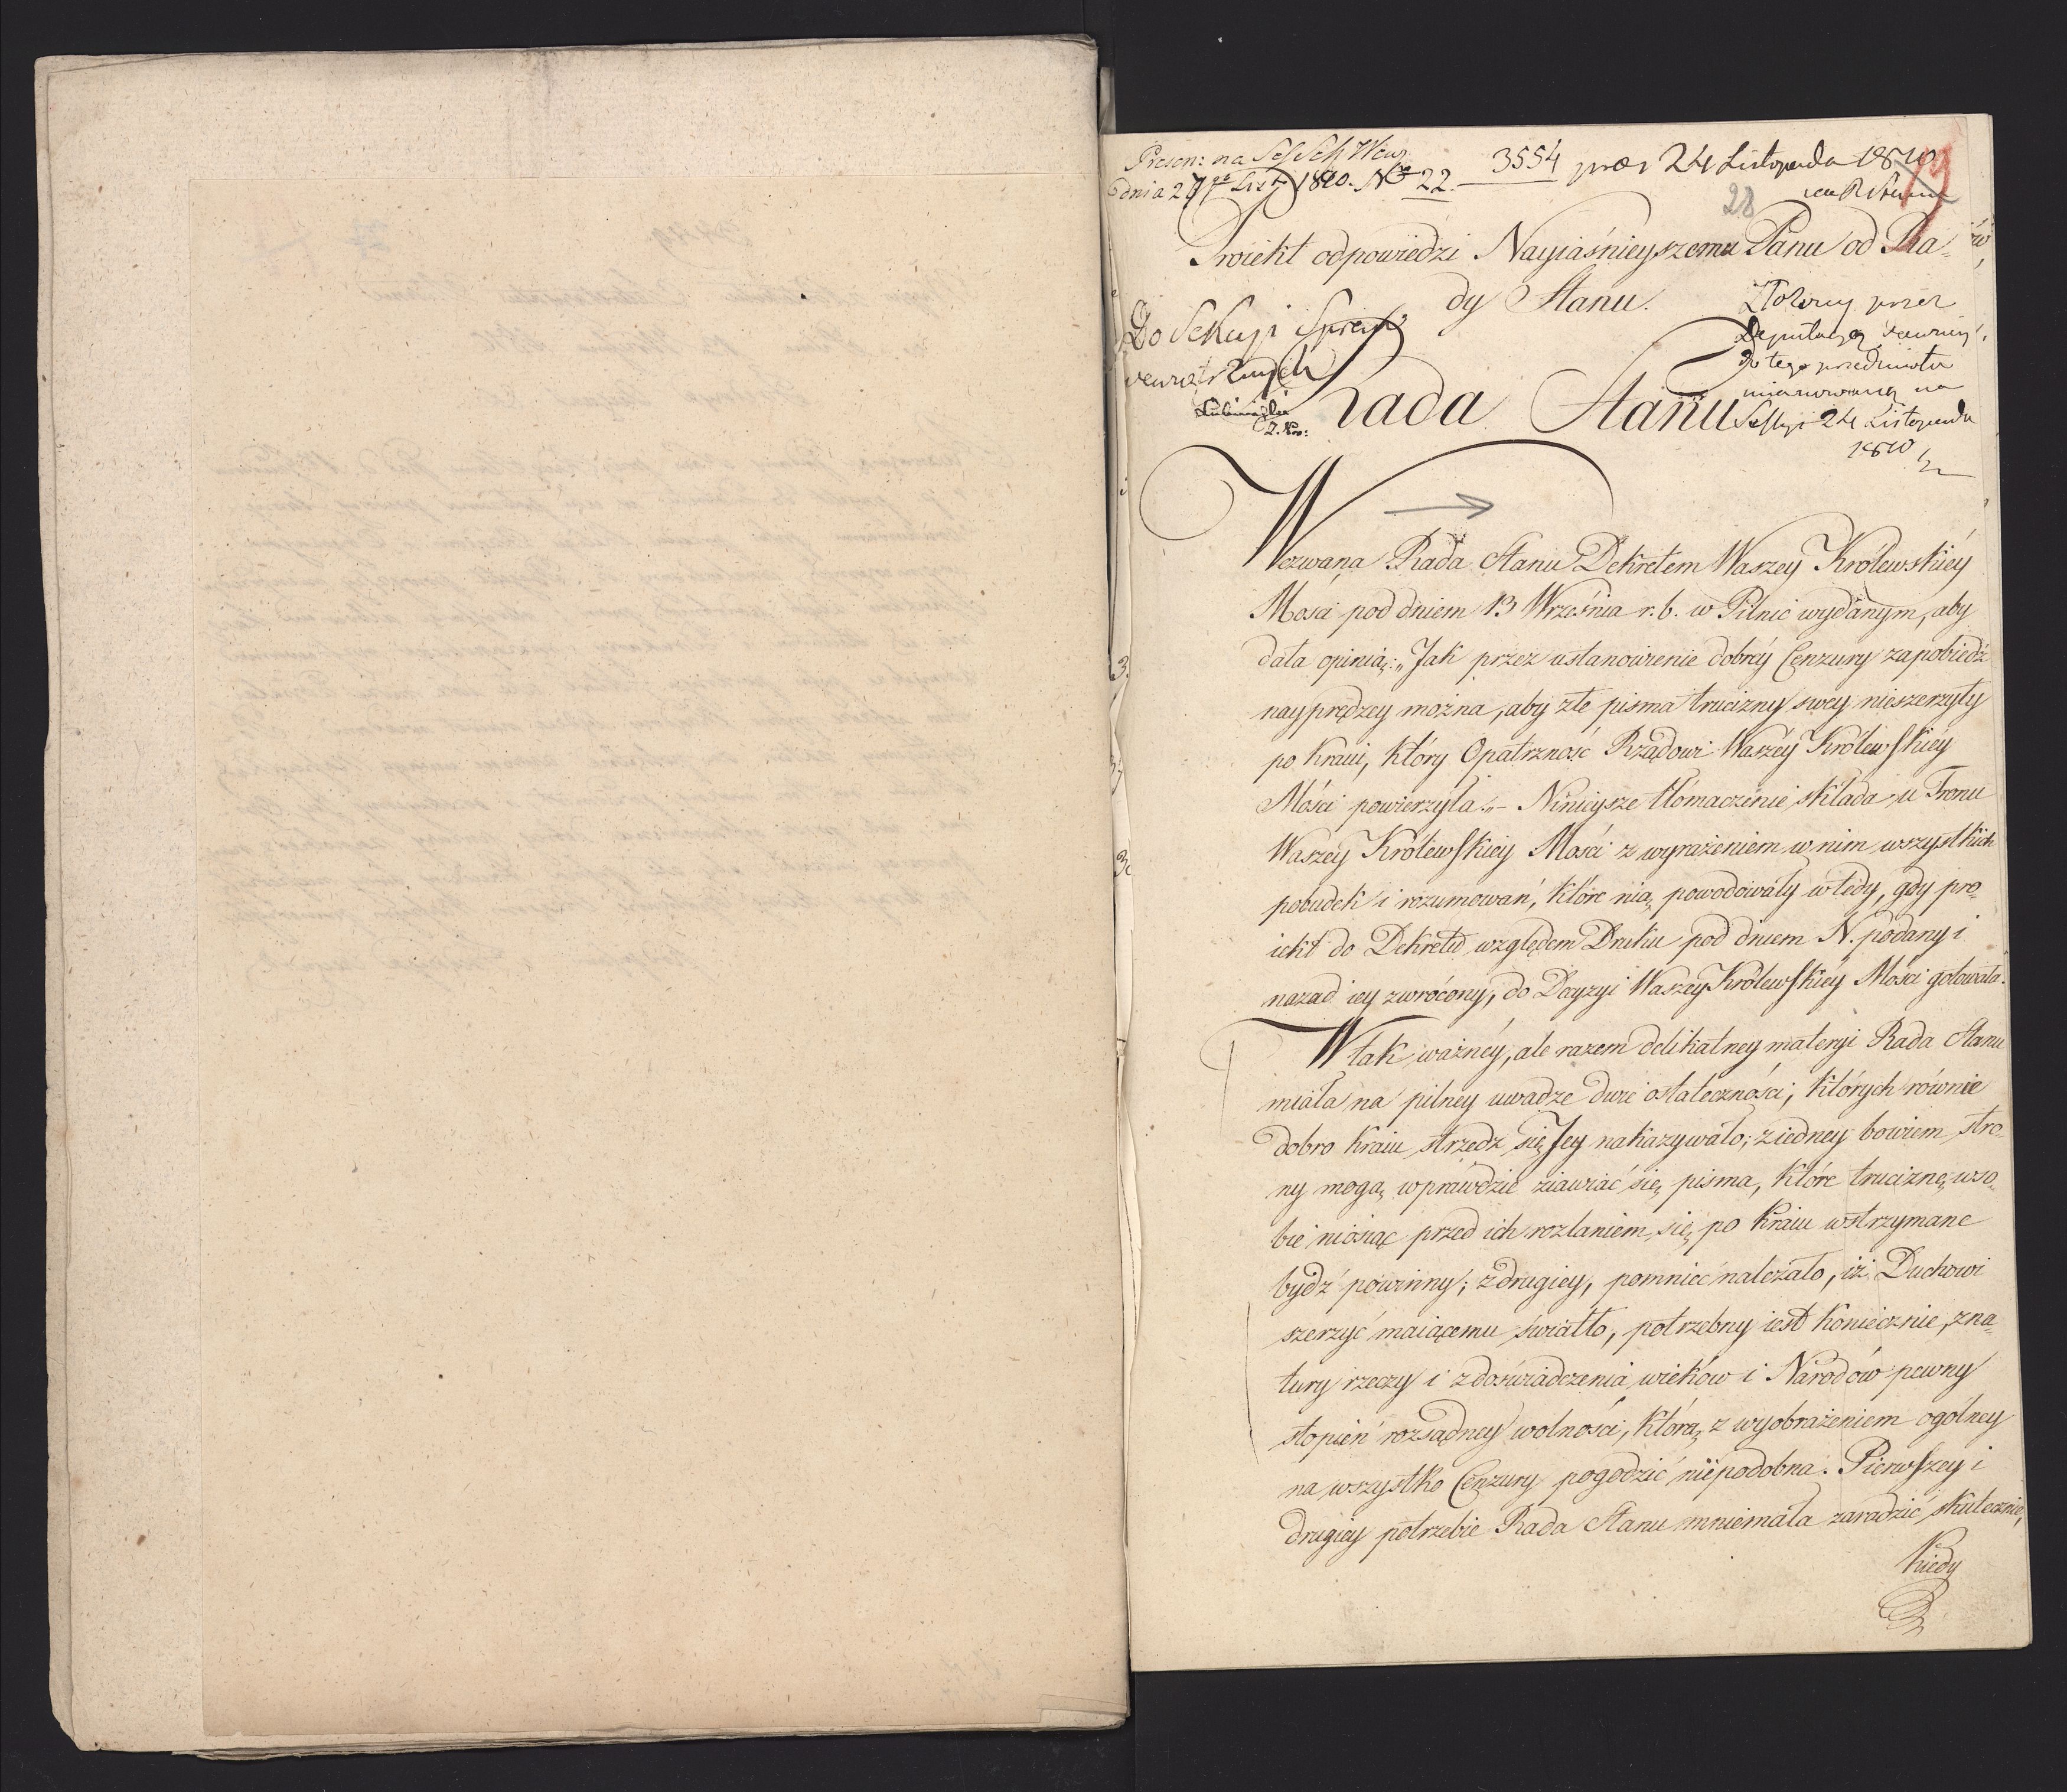 Presen: na Ses Sek Wew.
dnia 27go List: 1810. No 22.
3554 præs 24 Listopada 1810
28
Proiekt odpowiedzi Nayiaśnieyszemu Panu od Ra-
dy Stanu.
Do Sekcyi Spraw
wewnętrznych
Złożony przez
Deputacyą
do tego przedmiotu
mianowaną na
Sessyi 24 Listopada
1810
Rada Stanu
Wezwana Rada Stanu Dekretem Waszey Królewskiéy
Mosci pod dniem 13 Września r. b. w Pilnic wydanym, aby
dała opinią: „Jak przez ustanowienie dobréy Cenzury zapobiedz
nayprędzey można, aby złe pisma trucizny swey nieszerzyły
po kraiu, który Opatrzność Rządowi Waszéy Królewskiéy
Mości powierzyła." – Ninieysze tłómaczenie składa u Tronu
Waszéy Królewskiey Mości z wyrażeniem w nim wszystkich
pobudek i rozumowań, które nią powodowały wtedy, gdy pro-
iekt do Dekretu względem Druku pod dniem N. podany i
nazad iey zwrócony, do Decyzyi Waszey Królewskiéy Mości gotowała.
W tak ważnéy, ale razem delikatney materyi Rada Stanu
miała na pilney uwadze dwie ostateczności, których równie
dobro kraiu strzedz się Jey nakazywało; z iedney bowiem stro-
ny mogą wprawdzie ziawiać się pisma, które truciznę w so-
bie niosiąc przed ich rozlaniem się po kraiu wstrzymane
bydź powinny; z drugiey, pomnieć należało, iż Duchowi
szerzyć maiącemu światło, potrzebny iest koniecznie, z na-
tury rzeczy i z doświadczenia wieków i Narodów pewny
stopień rozsądney wolności, którą z wyobrażeniem ogólney
na wszystko Cenzury pogodzić niepodobna. Pierwszey i
drugiey potrzebie Rada Stanu mniemała zaradzić skutecznie,
kiedy